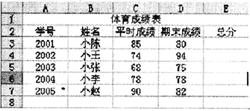 A B C D E
1 体育成绩表
2 学号 姓名 平时成绩 期末成绩 总分
3 2001 小陈 85 80
4 2002 小王 74 94
5 2003 小张 68 75
6 2004 小李 78 78
7 2005 小赵 90 82
8